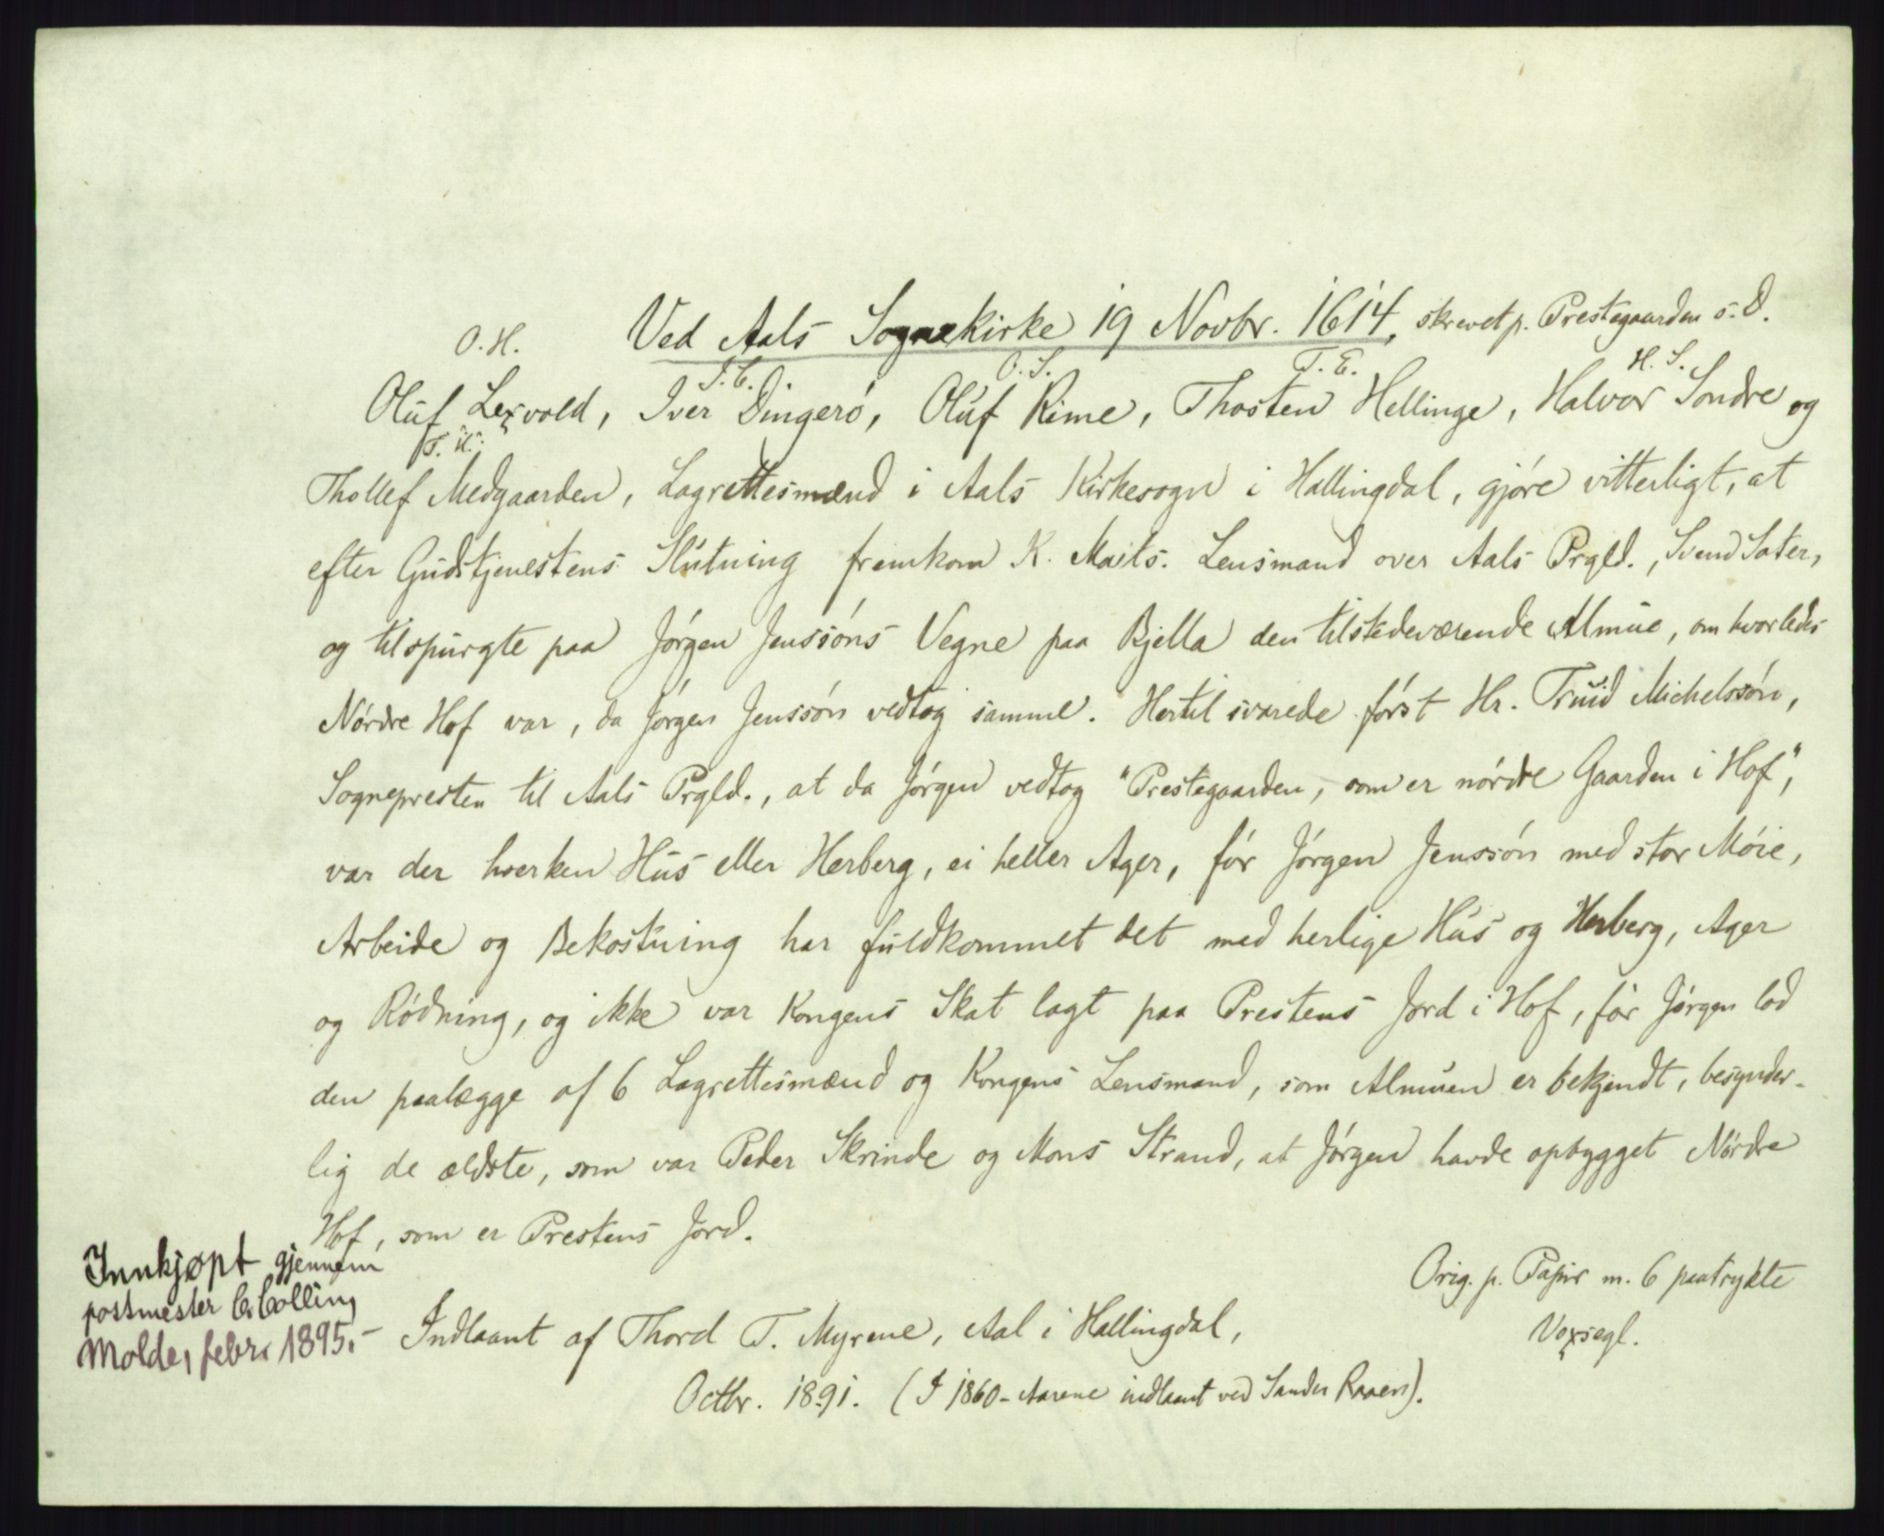 Ved Aals Sognekirke 19 Novbr. 1614, skrevet p. Prestegaarden s. D.
O. H. O. S. T. E. H. S.
Oluf Lexvold, Iver Dingerö, Oluf Rime, Thosten Hellinge, Halvor Sondre og
T. H.
Thollef Medgaarden, Lagrettesmænd i Aals Kirkesogn i Hallingdal, gjöre vitterligt, at
efter Gudstjenestens Slutning fremkom K. Maits. Lensmand over Aals Prgld., Svend Sater,
og tilspurgte paa Jörgen Jenssöns Vegne paa Bjella den tilstedeværende Almue, om hvorledes
Nördre Hof var, da Jörgen Jenssön vedtog samme. Hertil svarede först Hr. Truid Michelssön,
Sognepresten til Aals Prgld., at da Jörgen vedtog "Prestegaarden, som er nördre Gaarden i Hof",
var der hverken Hus eller Herberg, ei heller Ager, för Jörgen Jenssön med stor Möie,
Arbeide og Bekostning har fuldkommet det med herlige Hus og Herberg, Ager
og Rödning, og ikke var Kongens Skat lagt paa Prestens Jord i Hof, för Jörgen lod
den paalægge af 6 Lagrettesmænd og Kongens Lensmand, som Almuen er bekjendt, besynder-
lig de ældste, som var Peder Skrinde og Mons Strand, at Jörgen havde opbygget Nördre
Hof, som er Prestens Jord.
Orig. p. Papir m. 6 paatrykte
Voxsegl.
Indlaant af Thord T. Myrene, Aal i Hallingdal,
Octbr. 1891. (I 1860-Aarene indlaant ved Sander Raaen).
Innkjøpt gjennem
postmester C. Colling
Molde, febr. 1895.-